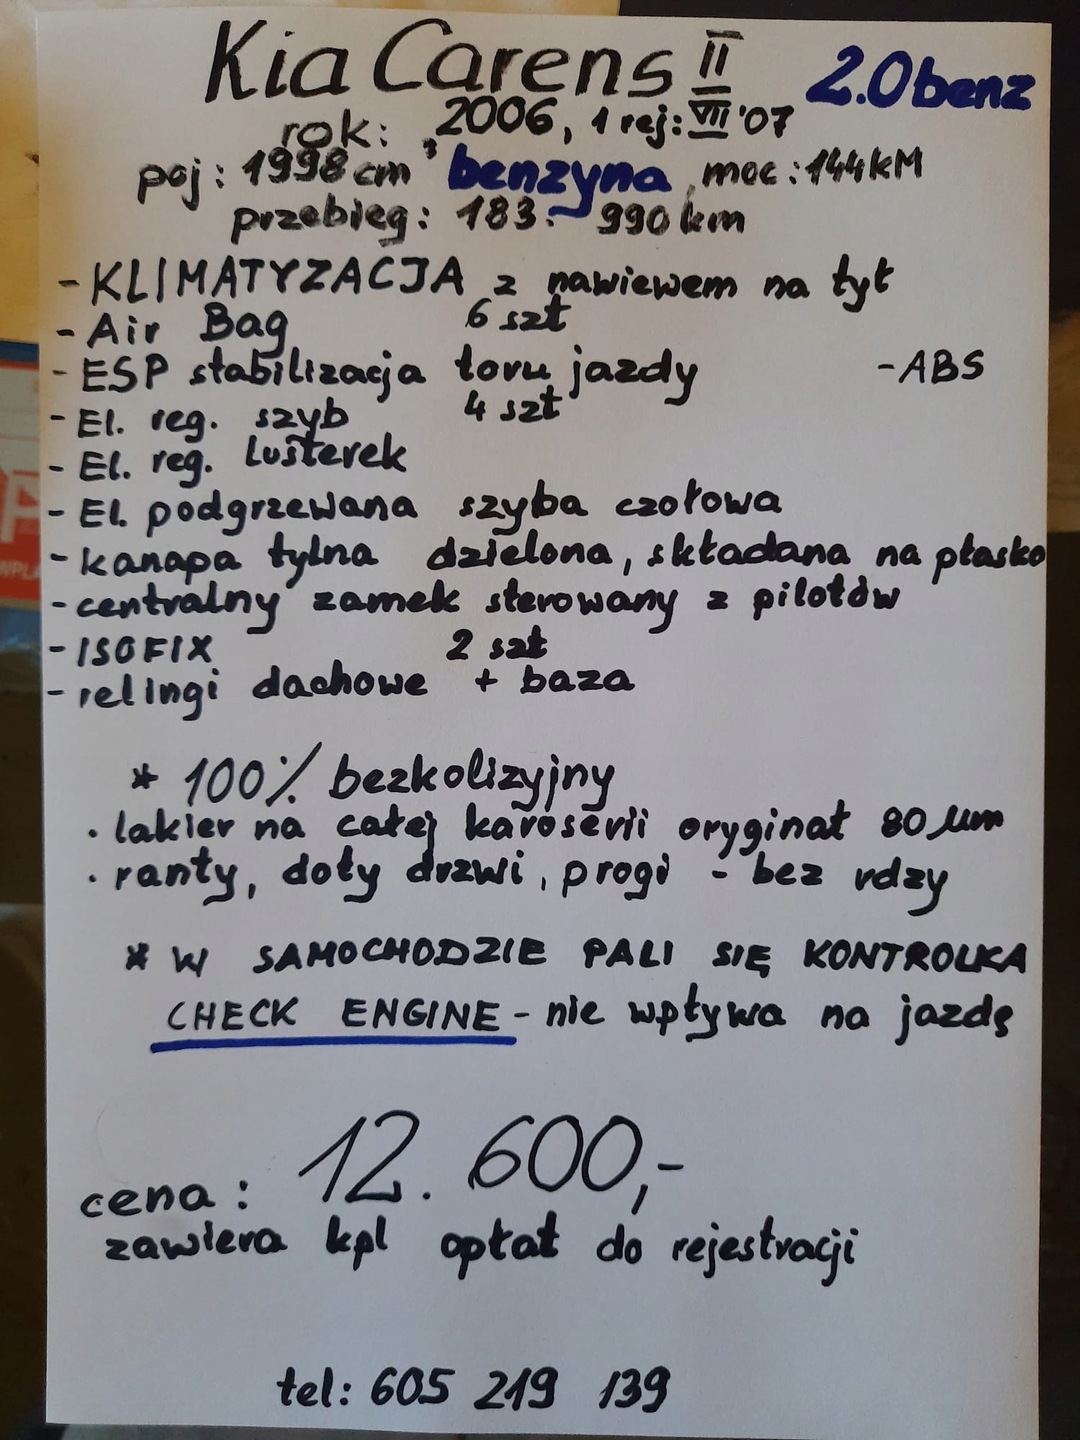 Kia Carens II 2.0 benz
rok: 2006, 1 rej: VII '07
poj: 1998 cm³ benzyna, moc: 144 kM
przebieg: 183. 990 km
- KLIMATYZACJA z nawiewem na tył
- Air Bag 6 szt
- ESP stabilizacja toru jazdy - ABS
- El. reg. szyb 4 szt
- El. reg. lusterek
- El. podgrzewana szyba czołowa
- kanapa tylna dzielona, składana na płasko
- centralny zamek sterowany z pilotów
- ISOFIX 2 szt
- relingi dachowe + baza
* 100% bezkolizyjny
· lakier na całej karoserii oryginał 80 µm
· ranty, doły drzwi, progi - bez rdzy
* W SAMOCHODZIE PALI SIĘ KONTROLKA
CHECK ENGINE - nie wpływa na jazdę
cena: 12. 600,-
zawiera kpl opłat do rejestracji
tel: 605 219 139